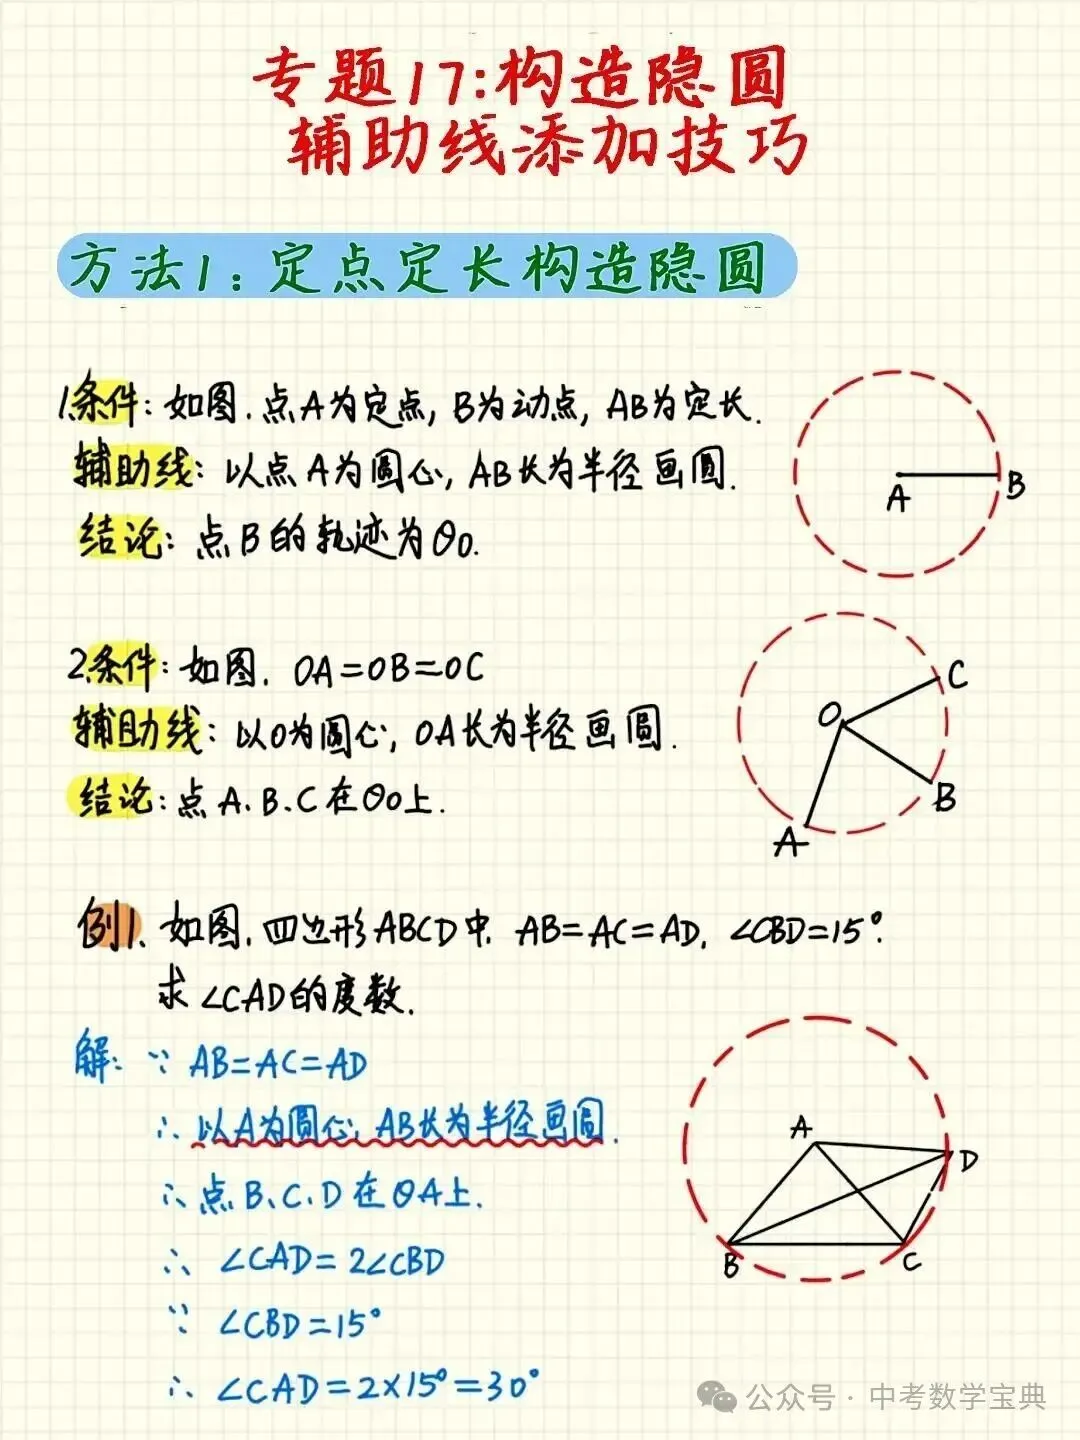 专题17:构造隐圆
辅助线添加技巧
方法1:定点定长构造隐圆
1.条件:如图.点A为定点,B为动点,AB为定长.
辅助线:以点A为圆心,AB长为半径画圆.
结论:点B的轨迹为⊙O.
A
B
2.条件:如图.OA=OB=OC
辅助线:以O为圆心,OA长为半径画圆.
结论:点A.B.C在⊙O上.
C
O
B
A
例1.如图.四边形ABCD中.AB=AC=AD.∠CBD=15°.
求∠CAD的度数.
解:∵AB=AC=AD
∴以A为圆心.AB长为半径画圆.
∴点B、C、D在⊙A上.
∴∠CAD=2∠CBD
∵∠CBD=15°
∴∠CAD=2×15°=30°
A
D
B
C
公众号·中考数学宝典